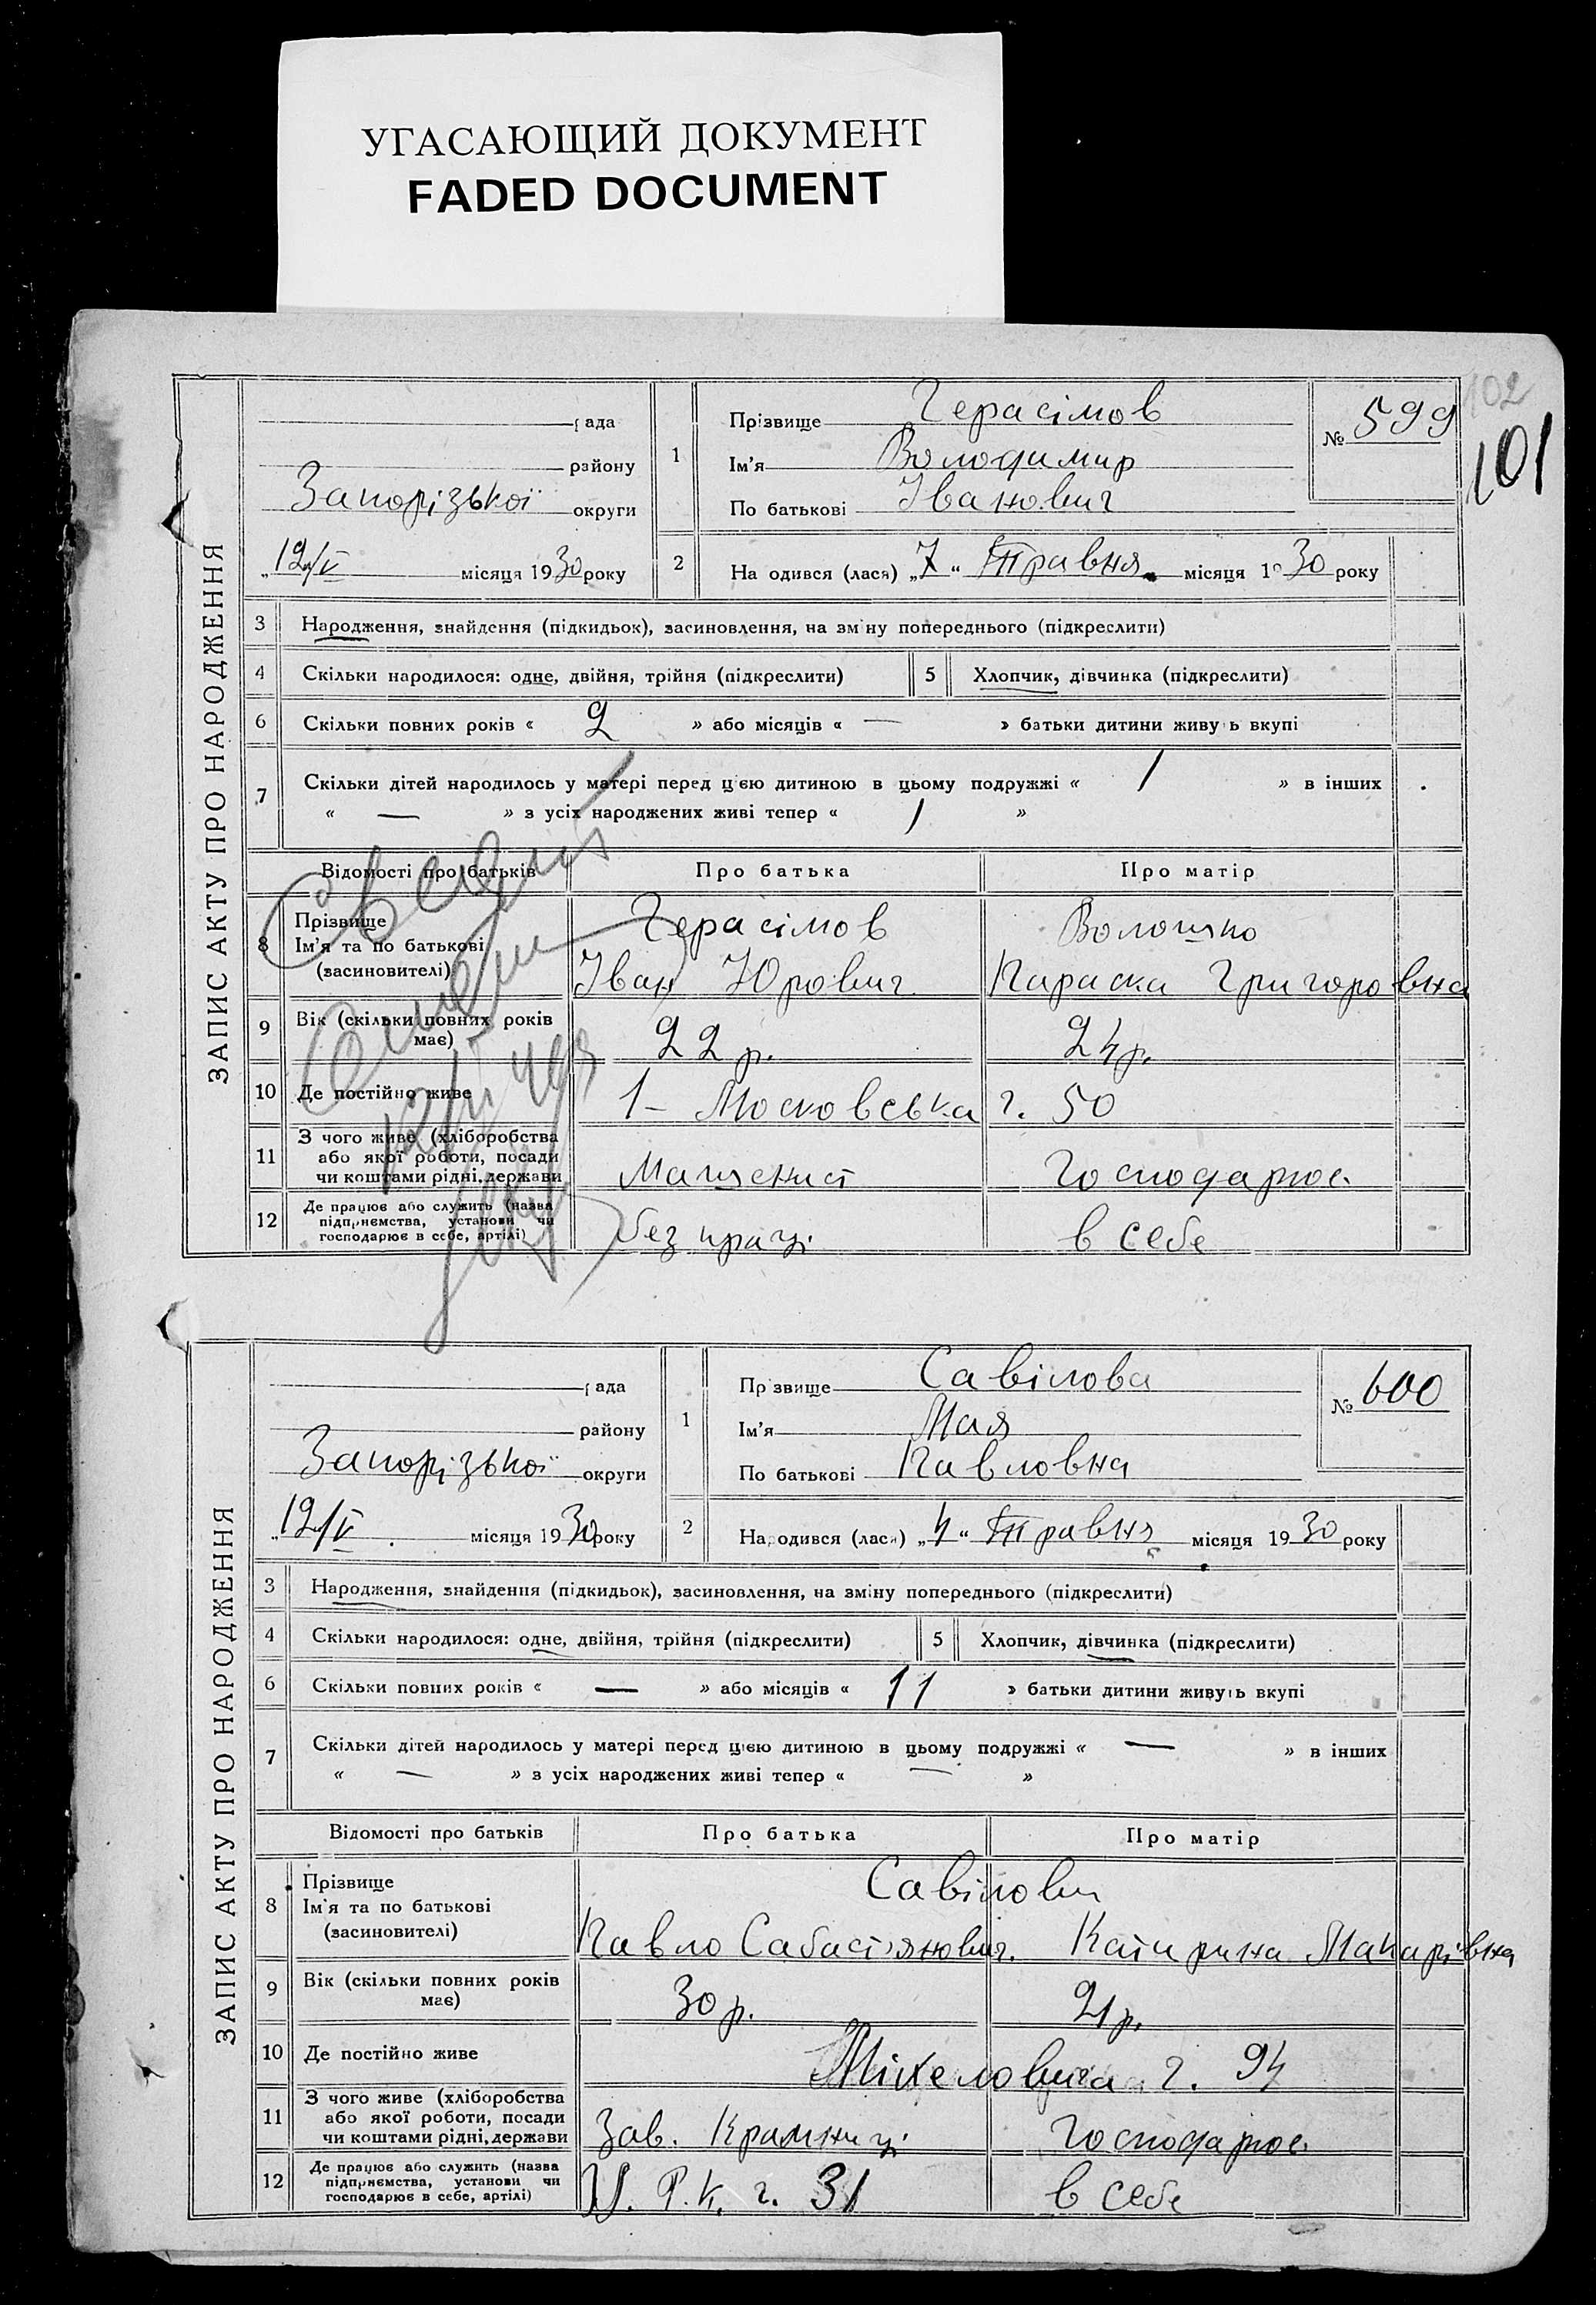 УГАСАЮЩИЙ ДОКУМЕНТ
FADED DOCUMENT
102
101
ЗАПИС АКТУ ПРО НАРОДЖЕННЯ
рада
району
Запорізької округи
„12/V місяця 1930 року
1 Прізвище Герасімов
Ім'я Володимир
По батькові Іванович
№ 599
2 На одився (лася) „7“ Травня місяця 1930 року
3 Народження, знайдення (підкидьок), засиновлення, на зміну попереднього (підкреслити)
4 Скільки народилося: одне, двійня, трійня (підкреслити) 5 Хлопчик, дівчинка (підкреслити)
6 Скільки повних років « 2 » або місяців « — » батьки дитини живуть вкупі
7 Скільки дітей народилось у матері перед цією дитиною в цьому подружжі « 1 » в інших
« — » з усіх народжених живі тепер « 1 »
Відомості про батьків Про батька Про матір
8 Прізвище
Ім'я та по батькові
(засиновителі)
Герасімов Волошко
Іван Юрович Параска Григоровна
9 Вік (скільки повних років має) 22 р. 24 р.
10 Де постійно живе 1 – Московська ч. 50
11 З чого живе (хліборобства
або якої роботи, посади
чи коштами рідні, держави
Машиніст Господарює.
12 Де працює або служить (назва
підприємства, установи чи
господарює в себе, артілі)
без праці в себе
ЗАПИС АКТУ ПРО НАРОДЖЕННЯ
рада
району
Запорізької округи
„12/V місяця 1930 року
1 Прізвище Савілова
Ім'я Мая
По батькові Павловна
№ 600
2 Народився (лася) „4“ Травня місяця 1930 року
3 Народження, знайдення (підкидьок), засиновлення, на зміну попереднього (підкреслити)
4 Скільки народилося: одне, двійня, трійня (підкреслити) 5 Хлопчик, дівчинка (підкреслити)
6 Скільки повних років « — » або місяців « 11 » батьки дитини живуть вкупі
7 Скільки дітей народилось у матері перед цією дитиною в цьому подружжі « — » в інших
« — » з усіх народжених живі тепер « — »
Відомості про батьків Про батька Про матір
8 Прізвище
Ім'я та по батькові
(засиновителі)
Савілови
Павло Сабастьянович. Катирина Макарівна
9 Вік (скільки повних років має) 30 р. 21 р.
10 Де постійно живе Міхеловича ч. 94
11 З чого живе (хліборобства
або якої роботи, посади
чи коштами рідні, держави
Зав. Крамниці Господарює.
12 Де працює або служить (назва
підприємства, установи чи
господарює в себе, артілі)
Р. К. ч. 31 в себе